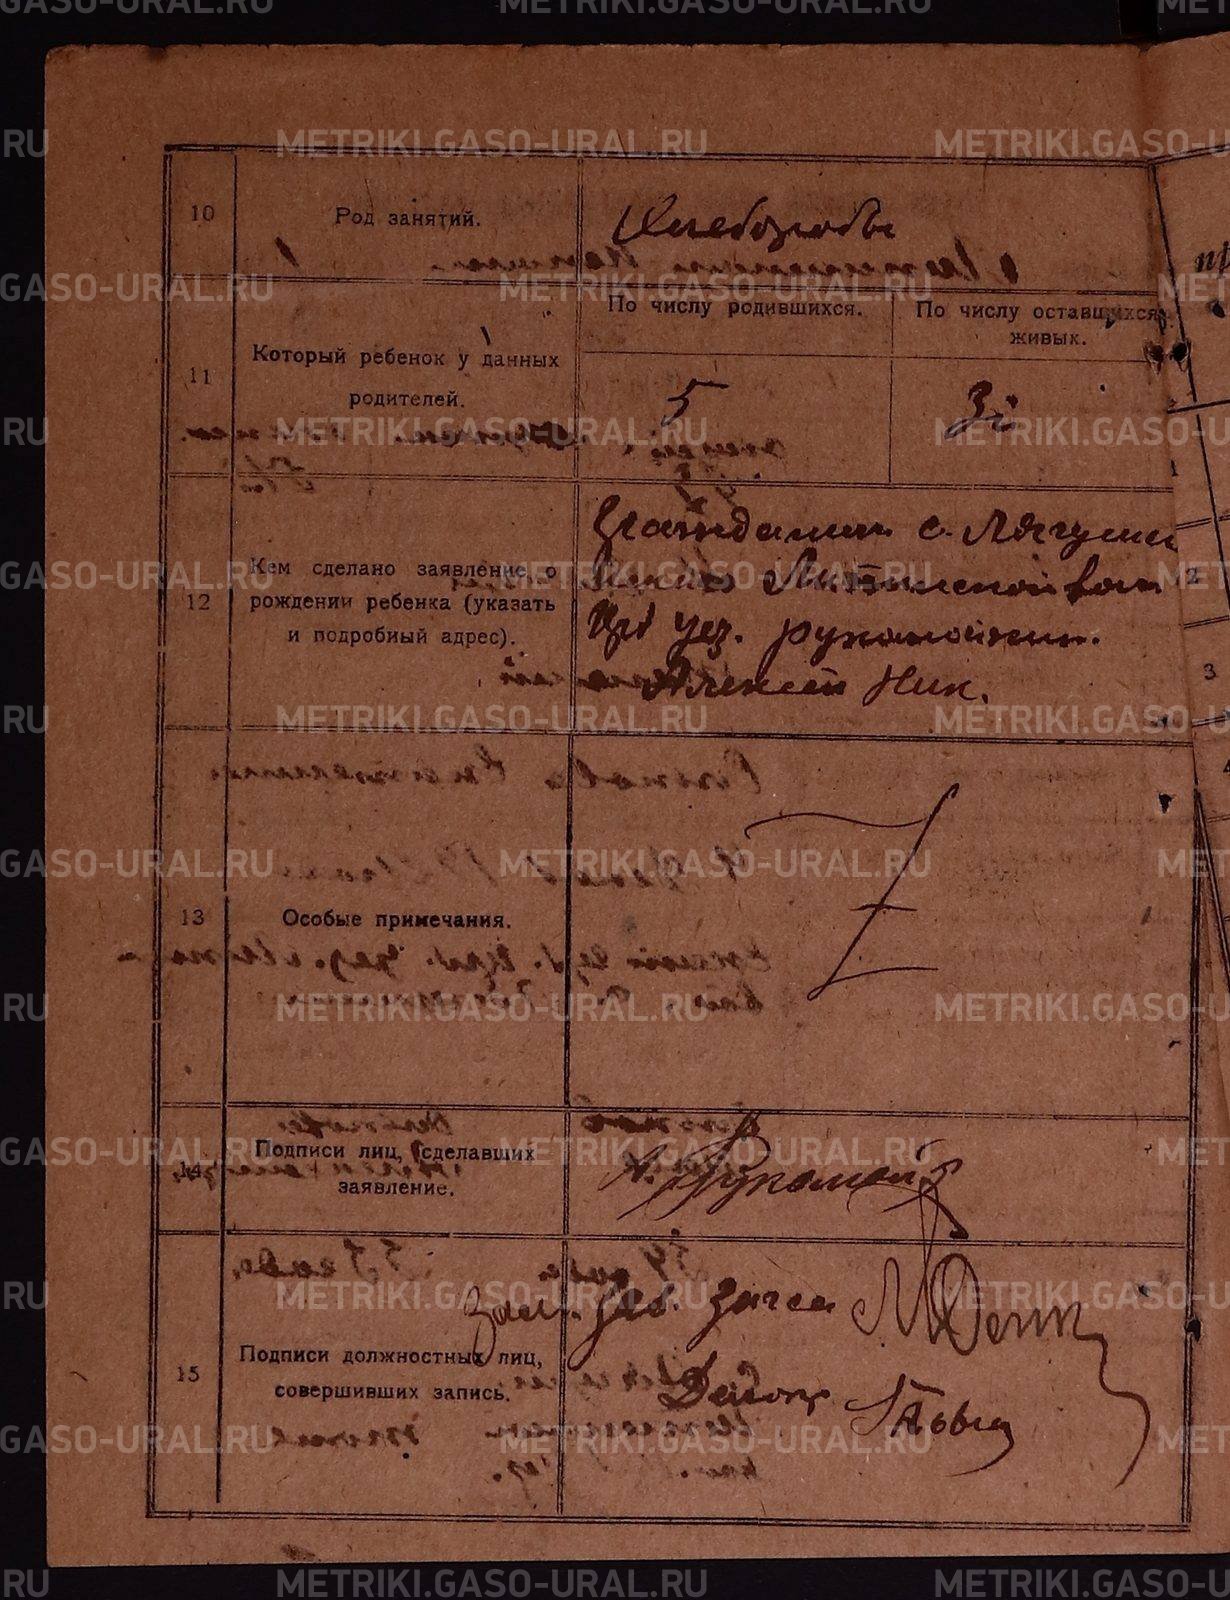 METRIKI.GASO-URAL.RU
10
Род занятий.
Хлеборобы
11
Который ребенок у данных
родителей.
По числу родившихся.
По числу оставшихся
живых.
5
3й
12
Кем сделано заявление о
рождении ребенка (указать
и подробный адрес).
Гражданин с. Лягуши
вол
уез. Рукомойкин.
Алексей Ник.
13
Особые примечания.
Z
14
Подписи лиц, сделавших
заявление.
А. Рукомойк
15
Подписи должностных лиц,
совершивших запись.
Зав. загса
Делопр
2
3